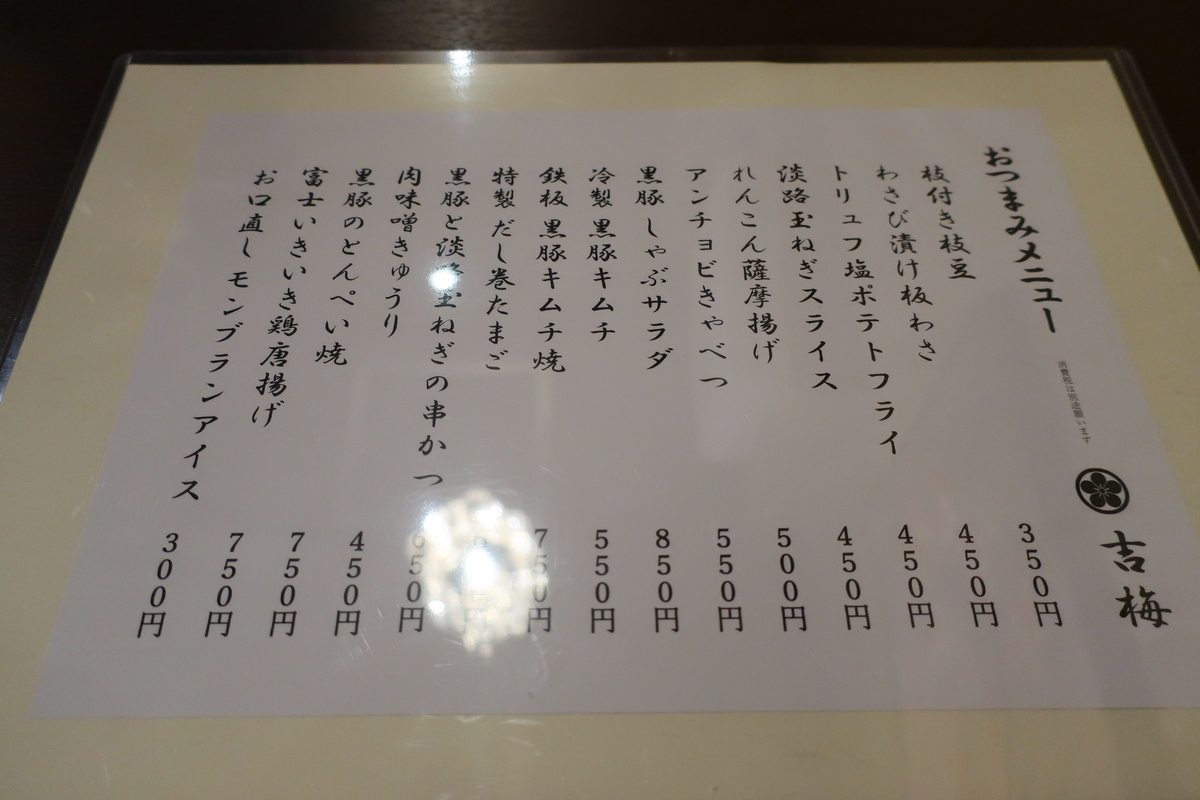 おつまみメニュー
消費税は別途願います
吉梅
枝付き枝豆 350円
わさび漬け板わさ 450円
トリュフ塩ポテトフライ 450円
淡路玉ねぎスライス 450円
れんこん薩摩揚げ 500円
アンチョビきゃべつ 550円
黒豚しゃぶサラダ 850円
冷製 黒豚キムチ 550円
鉄板 黒豚キムチ焼 750円
特製だし巻たまご 円
黒豚と淡路玉ねぎの串かつ 650円
肉味噌きゅうり 450円
黒豚のとんぺい焼 750円
富士いきいき鶏唐揚げ 750円
お口直し モンブランアイス 300円